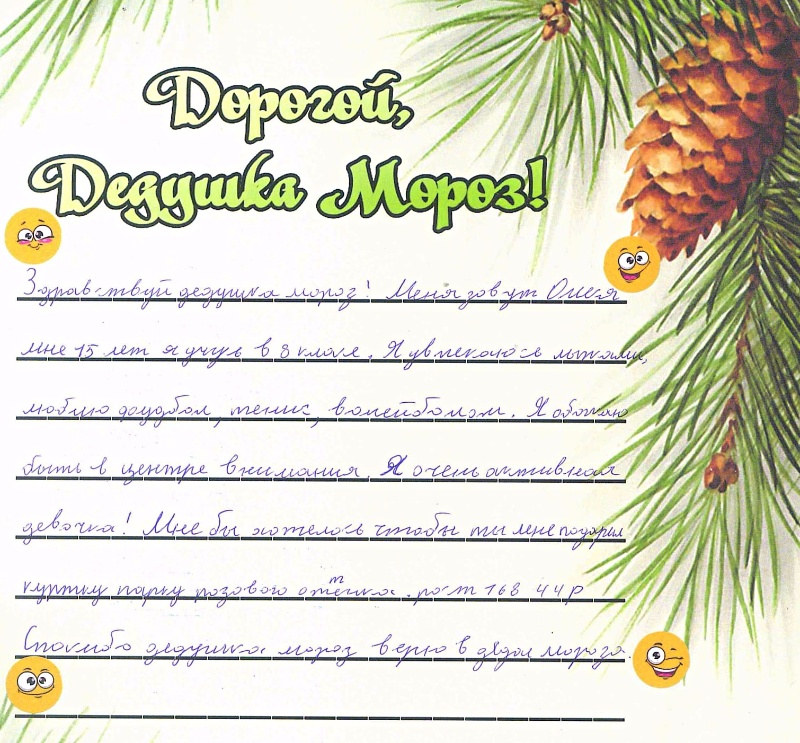 Дорогой,
Дедушка Мороз!
Здравствуй дедушка мороз! Меня зовут Олеся
мне 15 лет я учусь в 8 класе. Я увлекаюсь лыжами,
люблю фудбол, тенис, волейболом. Я обожаю
быть в центре внимания Я очень активная
девочка! Мне бы хотелось чтобы ты мне подарил
куртку парку розового оттенка. рост 168 44р
Спасибо дедушка мороз верю в деда мороза.